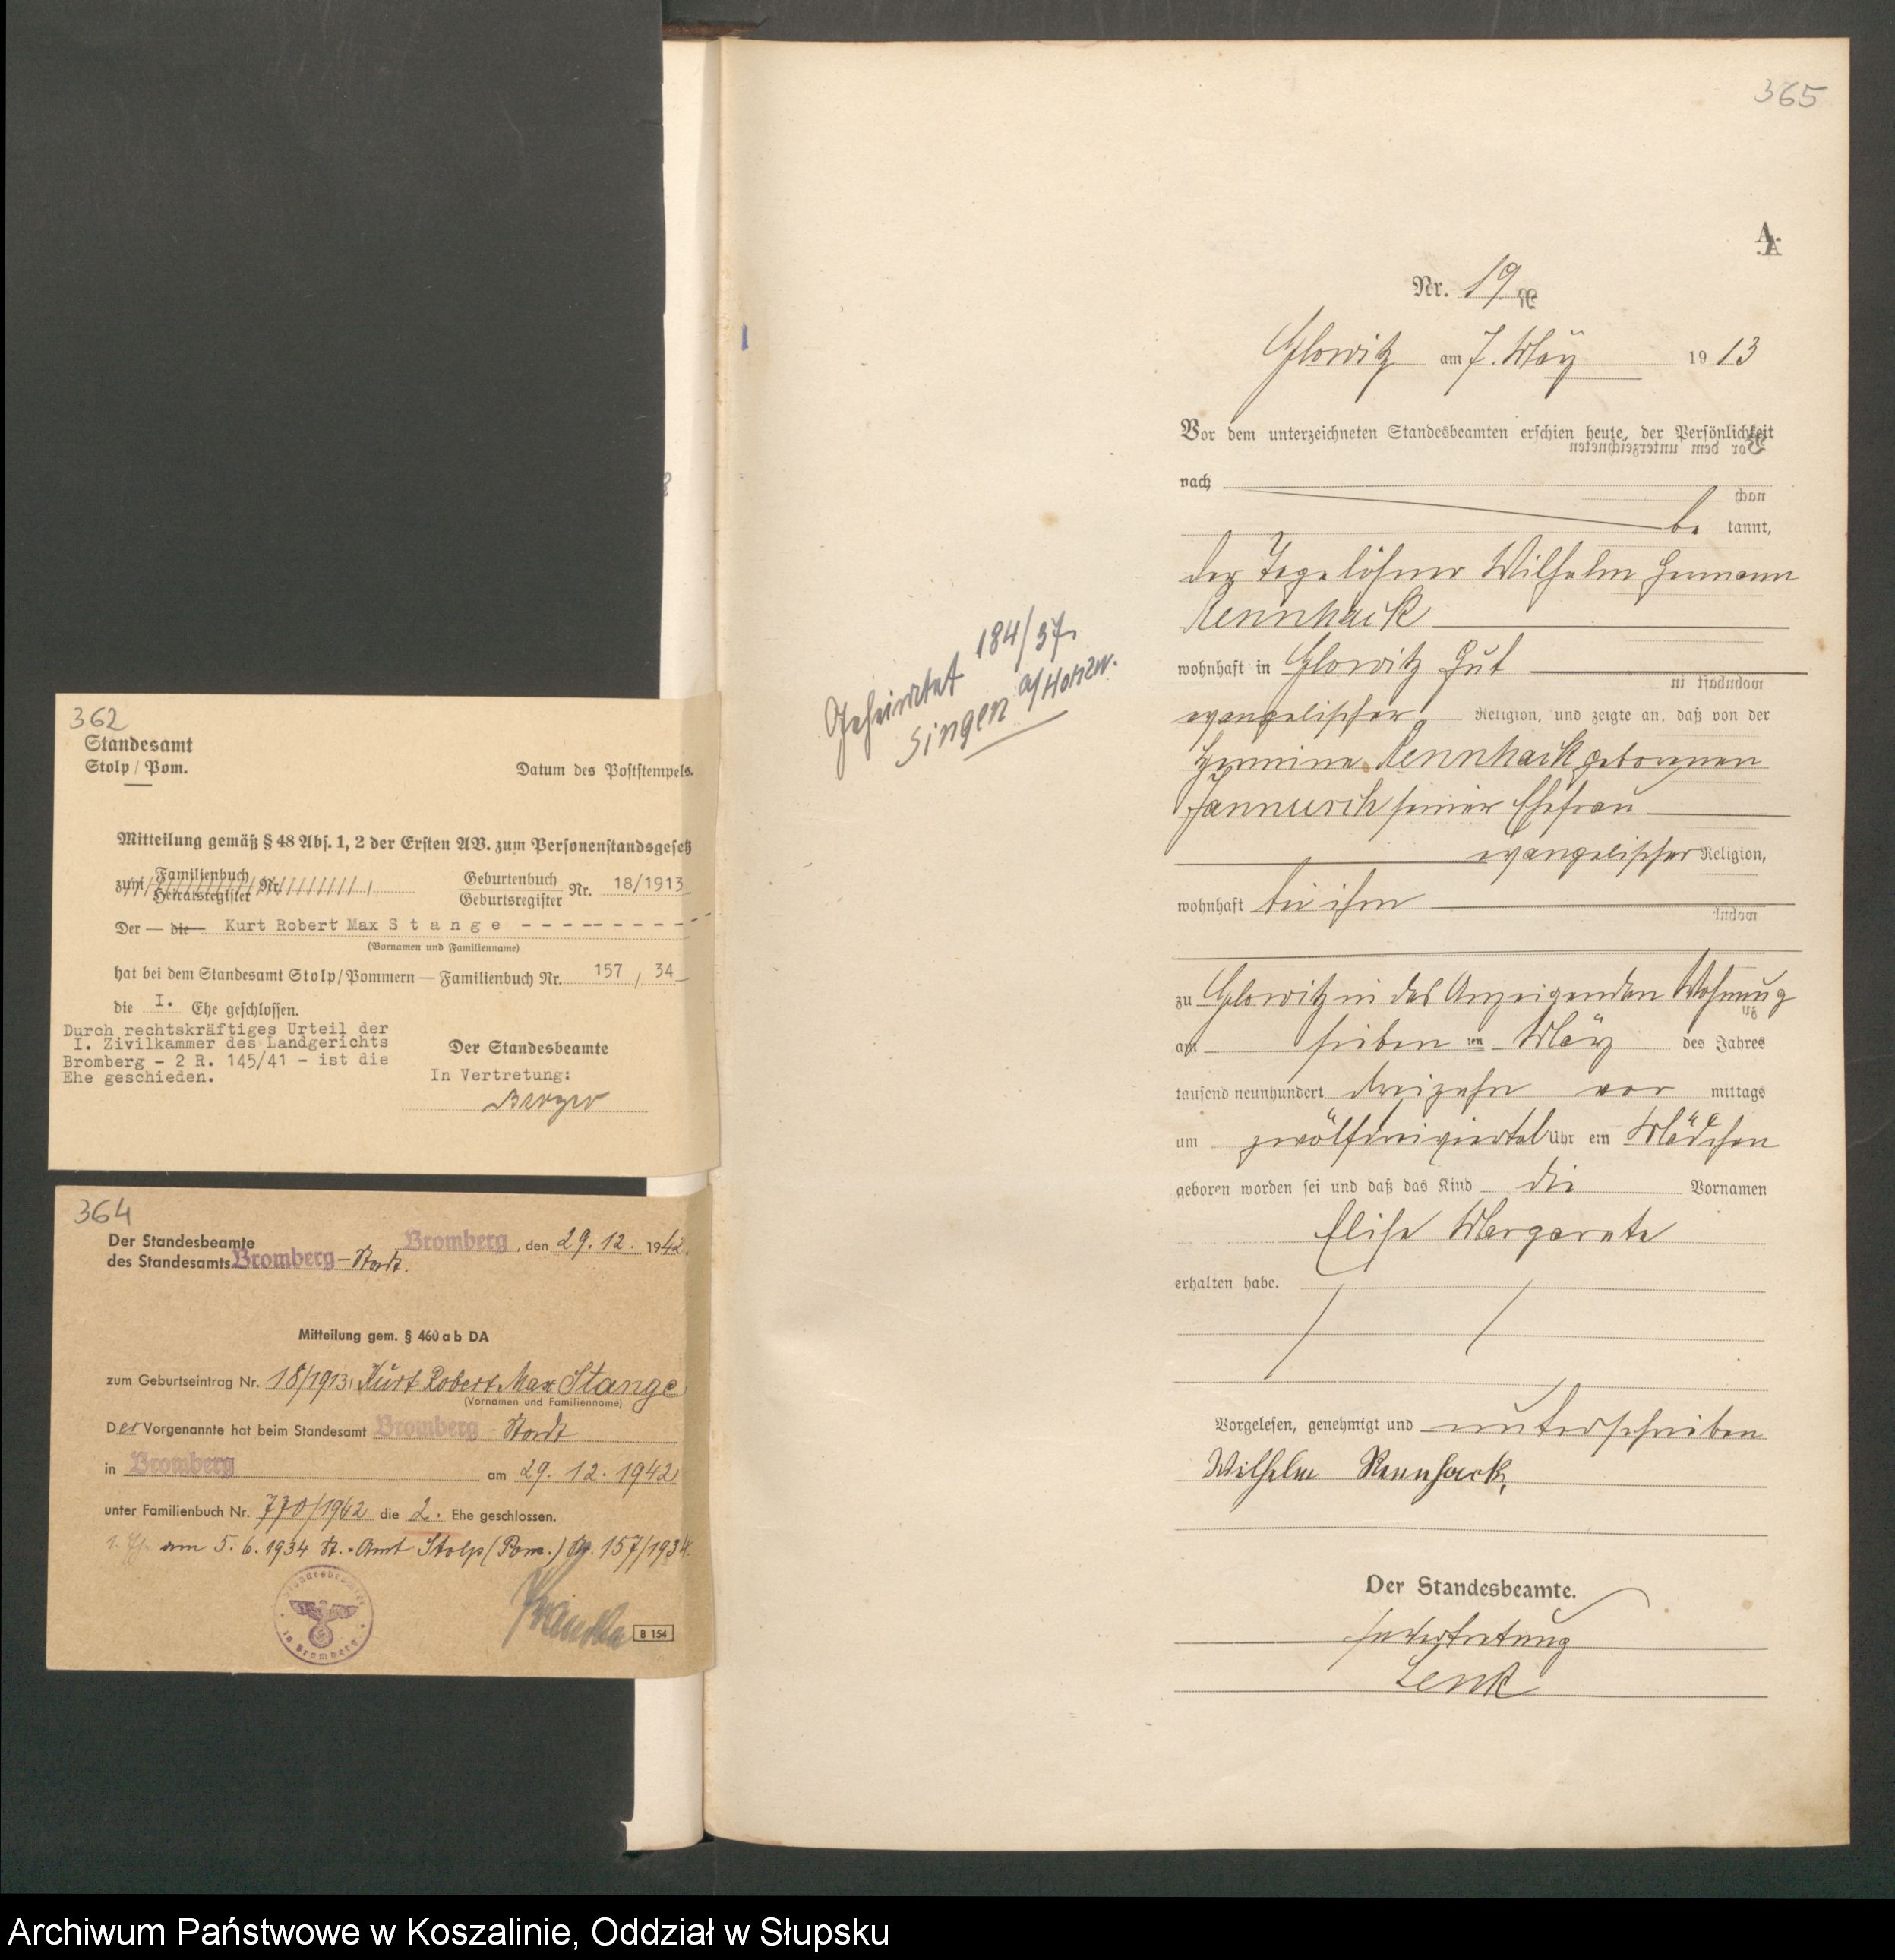 362
Standesamt
Stolp / Pom.
Datum des Poststempels.
Mitteilung gemäß § 48 Abs. 1, 2 der Ersten AV. zum Personenstandsgesetz
zum Familienbuch Nr.
Heiratsregister
Geburtenbuch
Geburtsregister Nr. 18/1913
Der — die — Kurt Robert Max Stange
(Vornamen und Familienname)
hat bei dem Standesamt Stolp/Pommern — Familienbuch Nr. 157 / 34
die I. Ehe geschlossen.
Durch rechtskräftiges Urteil der
I. Zivilkammer des Landgerichts
Bromberg - 2 R. 145/41 - ist die
Ehe geschieden.
Der Standesbeamte
In Vertretung:
364
Der Standesbeamte
des Standesamts Bromberg - Stadt.
Bromberg, den 29. 12. 1942.
Mitteilung gem. § 460 a b DA
zum Geburtseintrag Nr. 18/1913, Kurt Robert Max Stange
(Vornamen und Familienname)
Der Vorgenannte hat beim Standesamt Bromberg - Stadt
in Bromberg am 29. 12. 1942
unter Familienbuch Nr. 770/1942 die 2. Ehe geschlossen.
1. Eh. am 5. 6. 1934 St.-Amt Stolp (Pom.) Nr. 157/1934.
B 154
365
A.
Nr. 19
Glowitz am 7. März 1913
Vor dem unterzeichneten Standesbeamten erschien heute, der Persönlichkeit
nach
be kannt,
der Tagelöhner Wilhelm Hermann
Rennhack
wohnhaft in Glowitz Gut
evangelischer Religion, und zeigte an, daß von der
Hermine Rennhack geborenen
Jannusch seiner Ehefrau
evangelischer Religion,
wohnhaft bei ihm
zu Glowitz in des Anzeigenden Wohnung
am sieben ten März des Jahres
tausend neunhundert dreizehn vor mittags
um zwölfdreiviertel Uhr ein Mädchen
geboren worden sei und daß das Kind die Vornamen
Elise Margarete
erhalten habe.
Vorgelesen, genehmigt und unterschrieben
Wilhelm Rennhack.
Der Standesbeamte.
In Vertretung
Lenk
Geheiratet 184/37.
Singen a/Hohentw.
Archiwum Państwowe w Koszalinie, Oddział w Słupsku